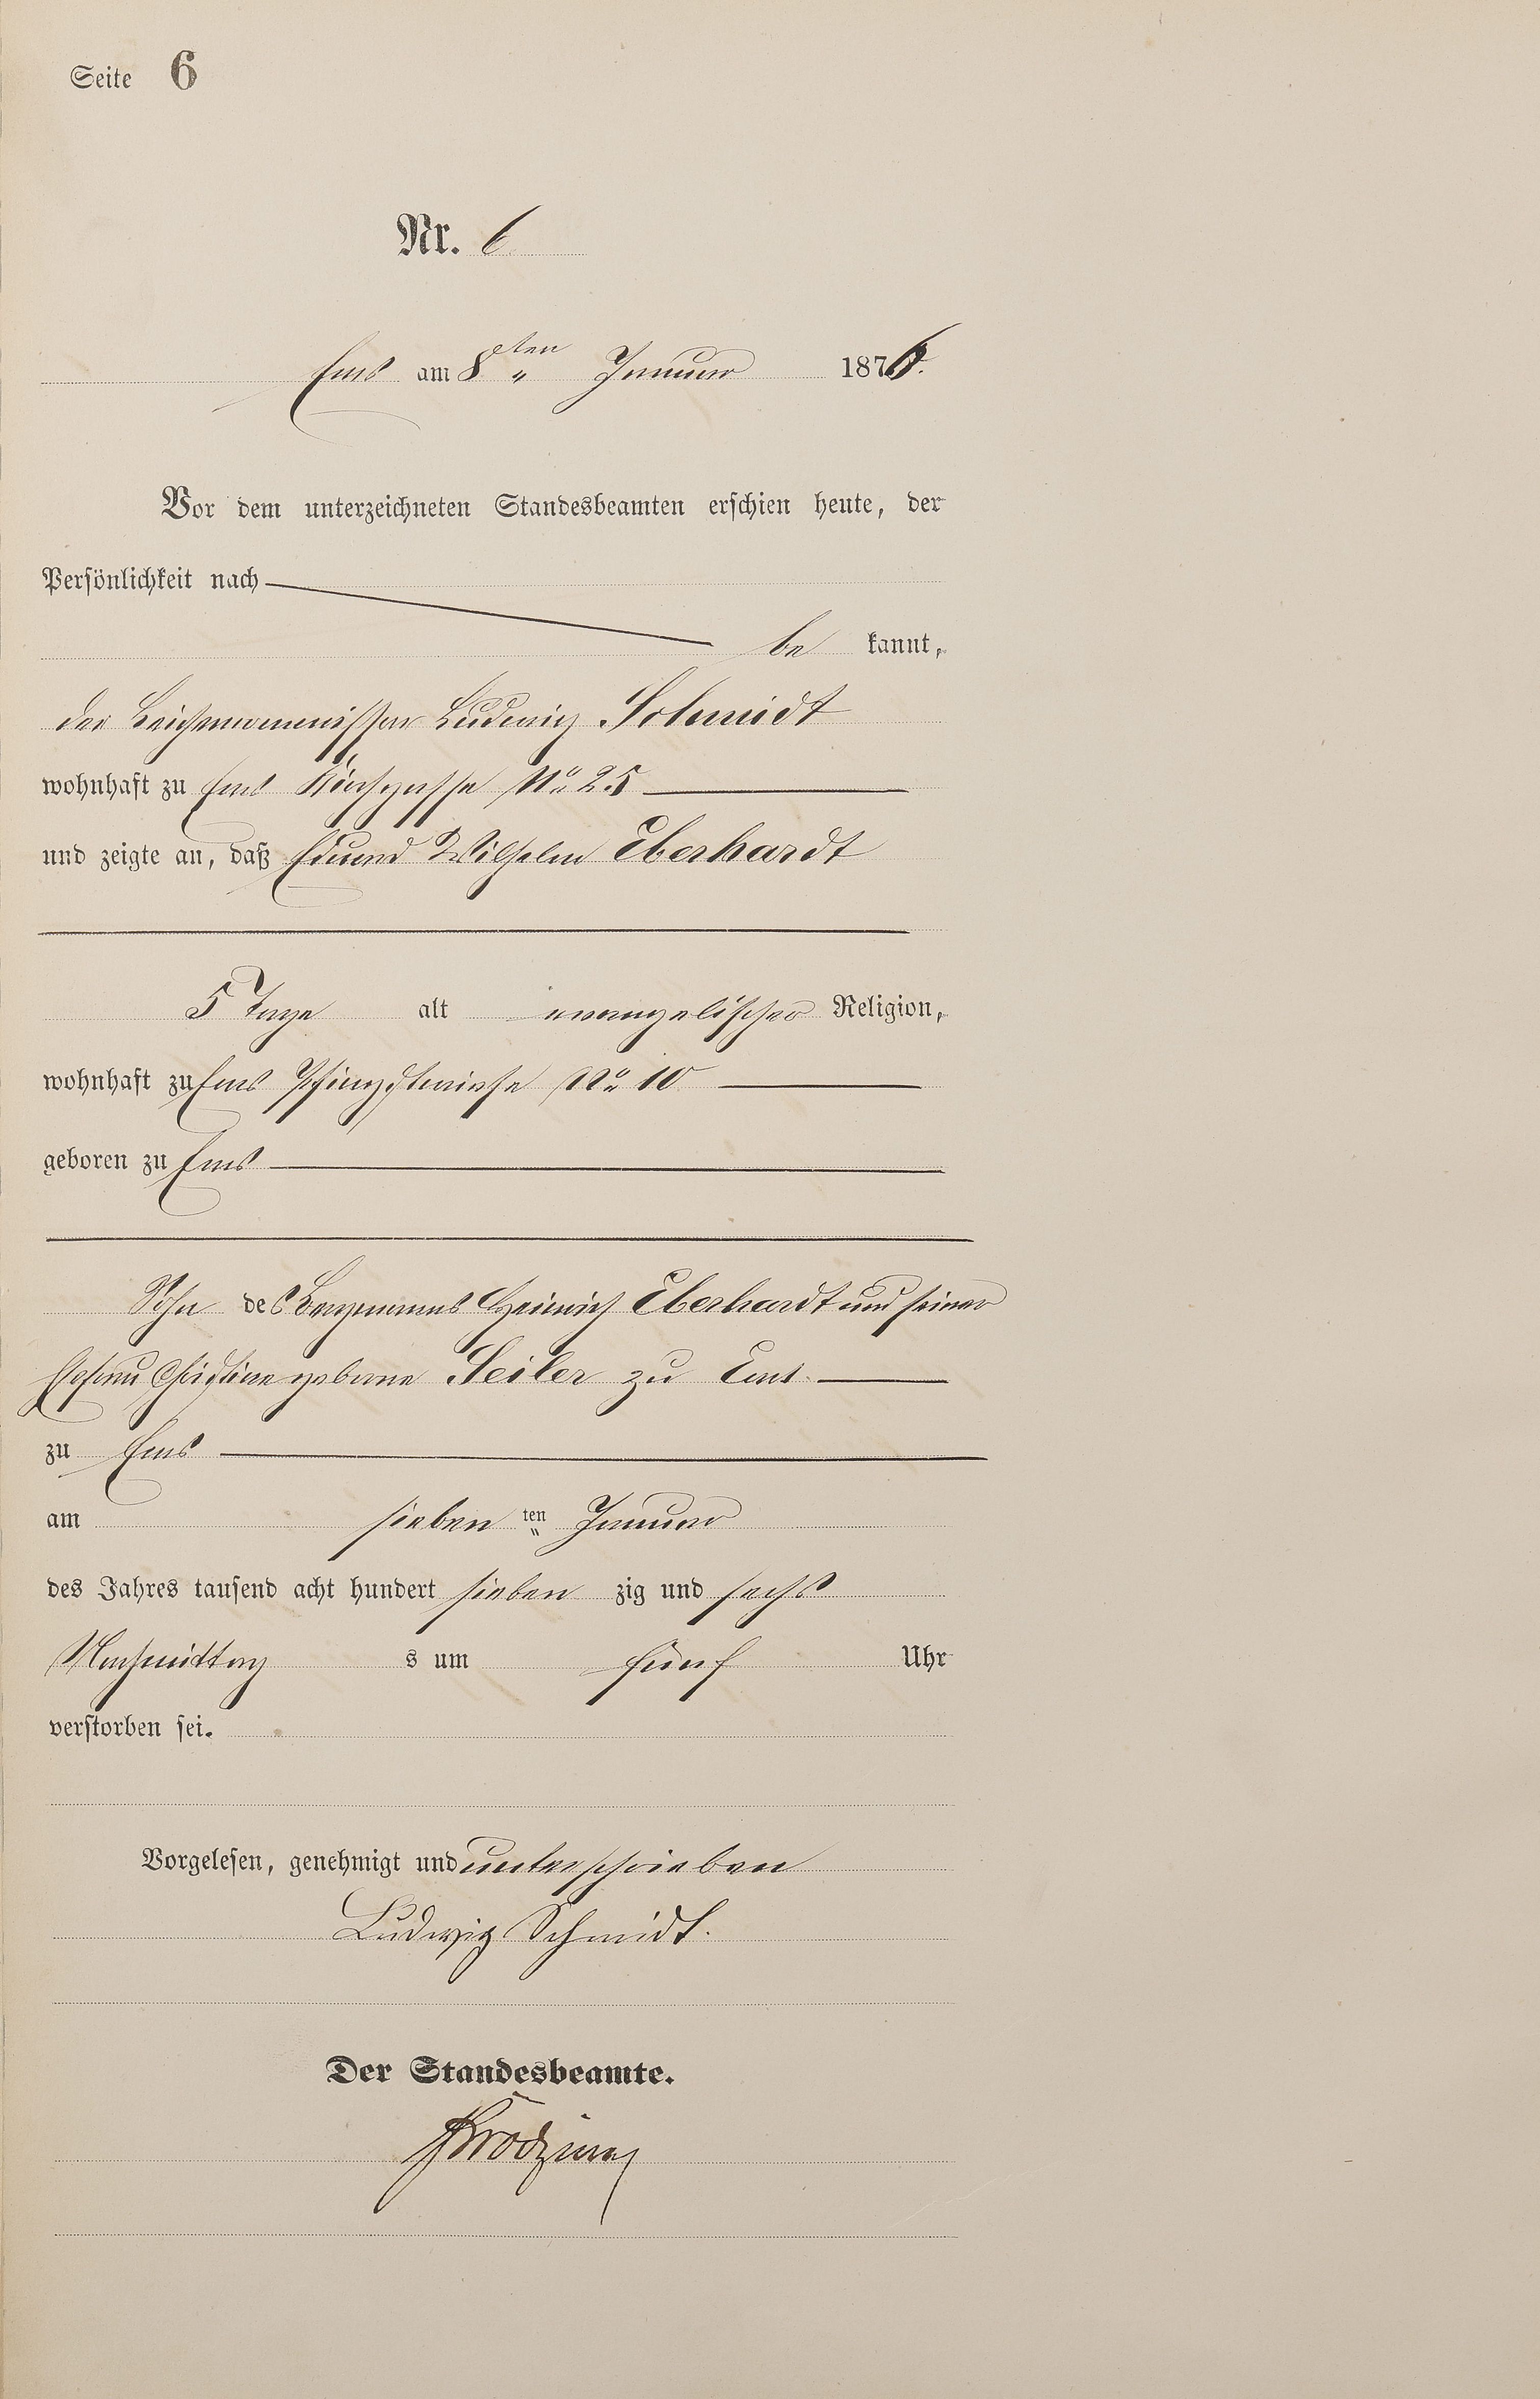 Seite 6
Nr. 6
Ems am 8ten " Januar 1876.
Vor dem unterzeichneten Standesbeamten erschien heute, der
Persönlichkeit nach
be kannt,
der Leichencommissar Ludwig Schmidt
wohnhaft zu Ems Kirchgasse No 25
und zeigte an, daß Eduard Wilhelm Eberhardt
5 Tage alt evangelischer Religion,
wohnhaft zu Ems Pfingstwiese No 10
geboren zu Ems
Sohn des Bergmanns Heinrich Eberhardt und seiner
Ehefrau Christine geborne Seiler zu Ems.
zu Ems
am sieben ten " Januar
des Jahres tausend acht hundert sieben zig und sechs
Nachmittag s um fünf Uhr
verstorben sei.
Vorgelesen, genehmigt und unterschrieben
Ludwig Schmidt.
Der Standesbeamte.